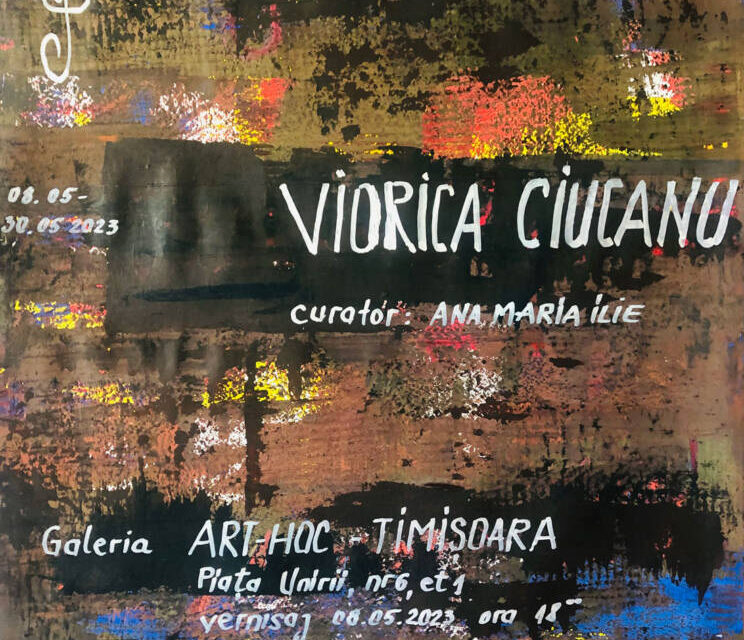 08.05-
30.05 2023
VIORICA CIUCANU
curator: ANA MARIA ILIE
Galeria ART-HOC - TIMISOARA
Piața Unirii, nr6, et 1
vernisaj 08.05.2023 ora 18